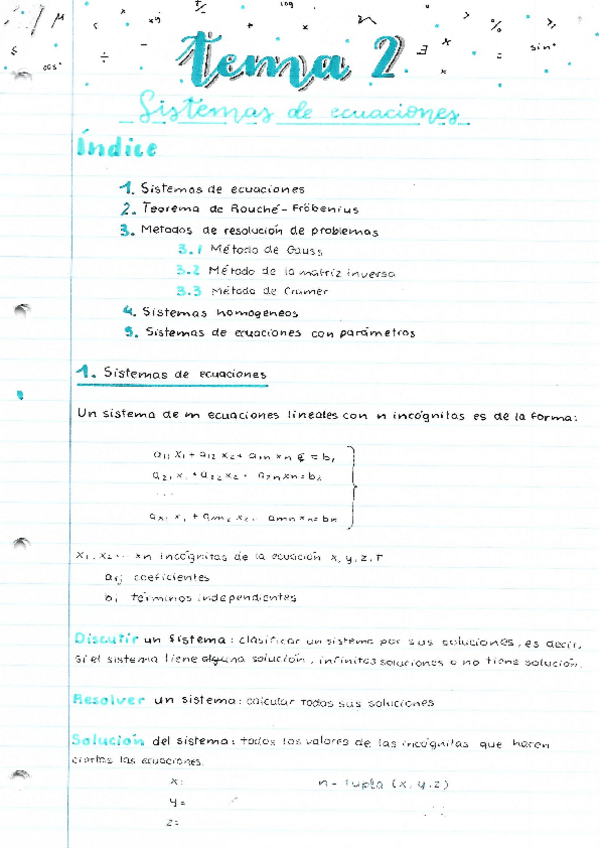 tema 2
Sistemas de ecuaciones
Índice
1. Sistemas de ecuaciones
2. Teorema de Rouché-Fröbenius
3. Metodos de resolución de problemas
3.1 Método de Gauss
3.2 Método de la matriz inversa
3.3 Método de Cramer
4. Sistemas homogeneos
5. Sistemas de ecuaciones con parámetros
1. Sistemas de ecuaciones
Un sistema de m ecuaciones lineales con n incógnitas es de la forma:
a11 x1 + a12 x2 + a1n xn = b1
a21 x1 + a22 x2 + a2n xn = b2
...
x1, x2 ... xn incógnitas de la ecuación x, y, z, T
aij coeficientes
bi términos independientes
Discutir un sistema: clasificar un sistema por sus soluciones, es decir,
si el sistema tiene alguna solución, infinitas soluciones o no tiene solución.
Resolver un sistema: calcular todas sus soluciones
Solución del sistema: todos los valores de las incógnitas que hacen
ciertas las ecuaciones.
x= n-tupla (x,y,z)
y=
z=